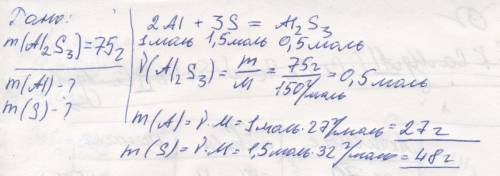 Дано:
m(Al₂S₃)=75г
m(Al)-?
m(S)-?
2Al + 3S = Al₂S₃
1моль 1,5моль 0,5моль
ν(Al₂S₃)= m/M = 75г/150г/моль = 0,5моль
m(Al)= ν·M= 1моль·27г/моль= 27г
m(S)= ν·M= 1,5моль·32г/моль= 48г